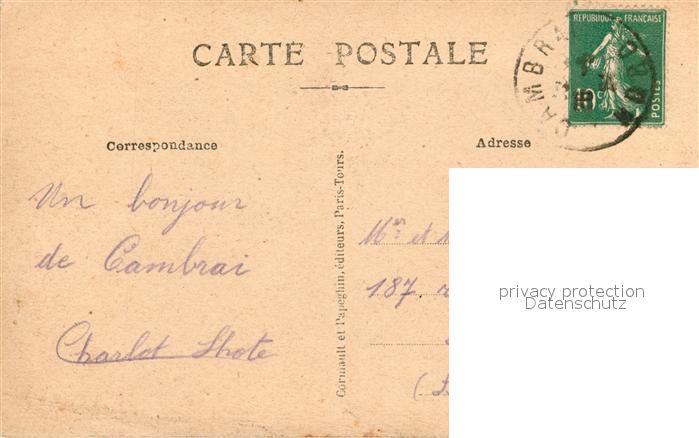 REPUBLIQUE FRANÇAISE
CAMBRAI NORD
POSTES
CARTE POSTALE
Correspondance
Adresse
Un bonjour
de Cambrai
Charlot Lhote
Cormault et Papeghin, éditeurs, Paris-Tours.
Mr et
187,
privacy protection
Datenschutz